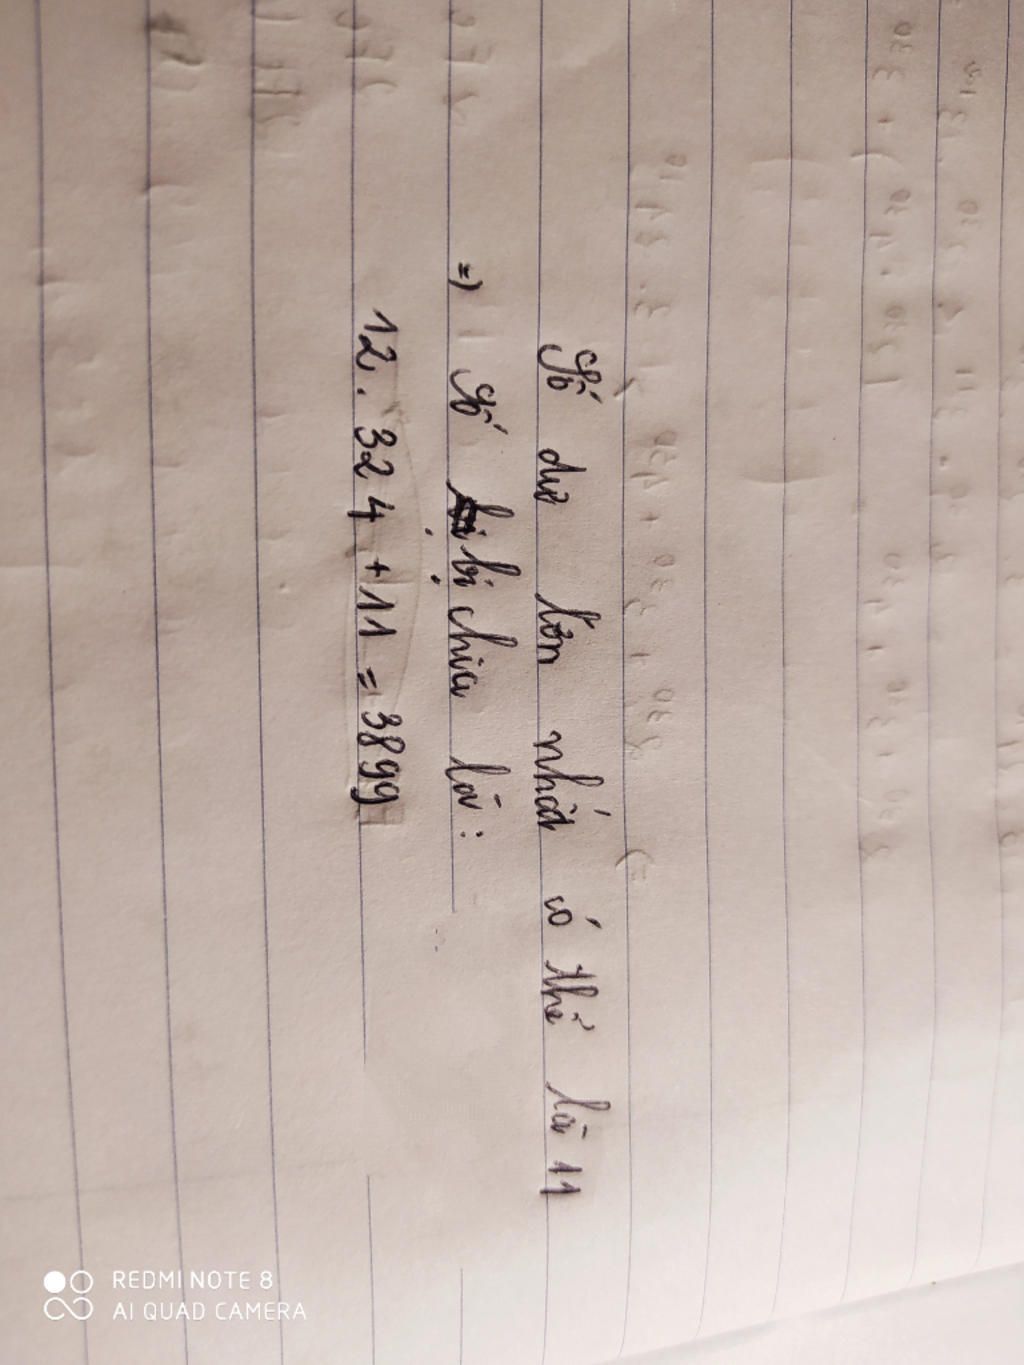 Số dư lớn nhất có thể là 11
=) Số bị chia là:
12. 324 + 11 = 3899
REDMI NOTE 8
AI QUAD CAMERA